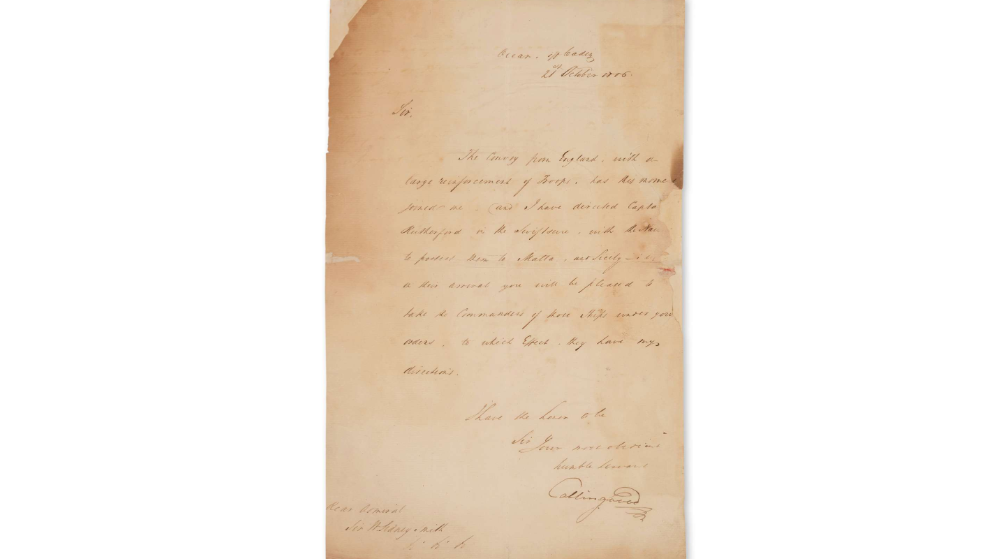 Ocean, off Cadiz
21st October 1806.
Sir.
The Convoy from England, with a
large reinforcement of Troops, has this mome
joined me. and I have directed Captn
Rutherford in the Swiftsure, with
to proceed them to Malta and Sicily
on their arrival you will be pleased to
take the Commanders of those Ships under your
orders, to which Effect, they have my
directions.
I have the honor to be
Sir Your most obedient
humble Servant
Collingwood
Rear Admiral
Sir Wm Sidney Smith